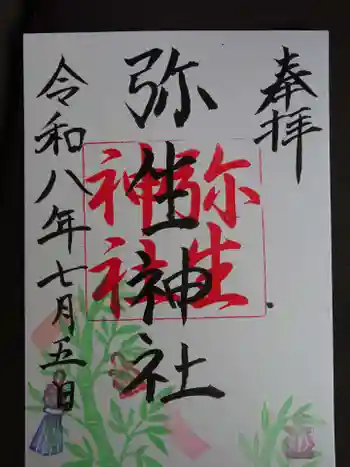 奉拝
弥生神社
弥生
神社
令和八年七月五日